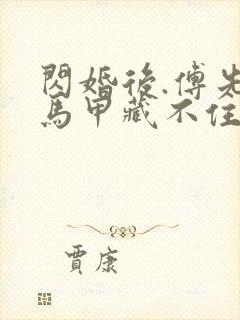 閃婚後.傅先
馬甲藏不住
賈康